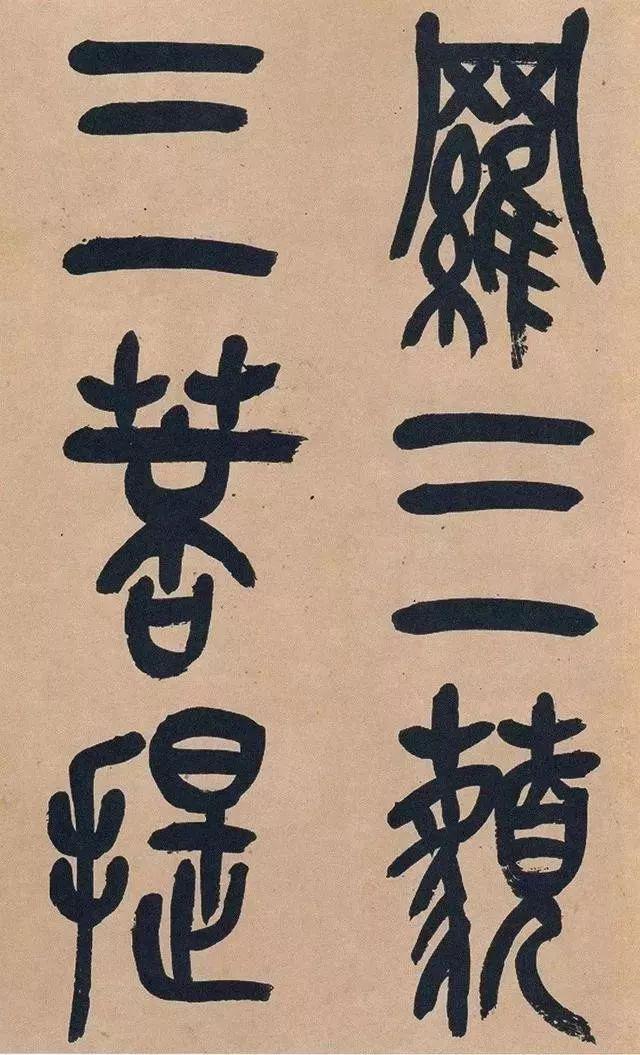 羅三藐
三菩提